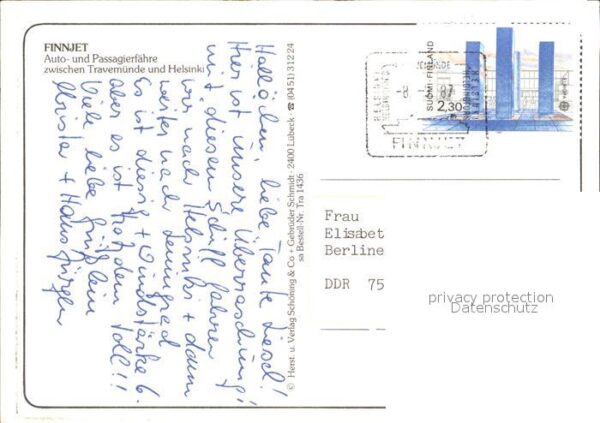 FINNJET
Auto- und Passagierfähre
zwischen Travemünde und Helsinki
Hallöchen, liebe Tante Liesel!
Hier ist unsere Überraschung!
mit diesem Schiff fahren
wir nach Helsinki + dann
weiter nach Leningrad
Es ist diesig + Windstärke 6.
aber es ist trotzdem toll!!
Viele liebe Grüßlein
Christa + Hans Jürgen
© Herst. u. Verlag Schöning & Co + Gebrüder Schmidt · 2400 Lübeck · ☎ (04 51) 3 12 24
sa Bestell-Nr. Tra 1436
SUOMI FINLAND
2,30
87
FINNJET
Frau
Elisabet
Berline
DDR 75
privacy protection
Datenschutz